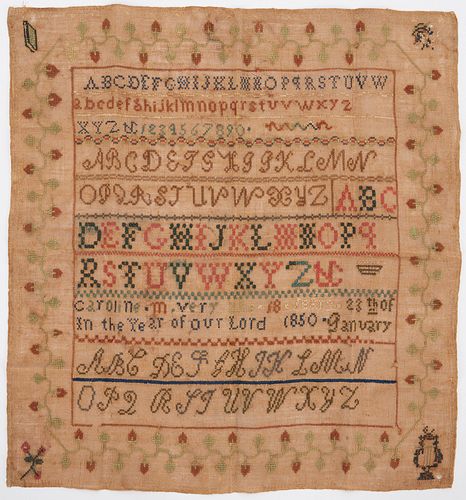 ABCDEFGHIJKLMNOPQRSTUVW
abcdefghijklmnopqrstuvwxyz
XYZ& 1234567890.
ABCDEFGHIJKLMN
OPQRSTUVWXYZ ABC
DEFGHIJKLMNOPQ
RSTUVWXYZ&
Caroline. m. very 18 23th of
In the Year of our Lord 1850. January
ABCDEFGHIJKLMN
OPQRSTUVWXYZ